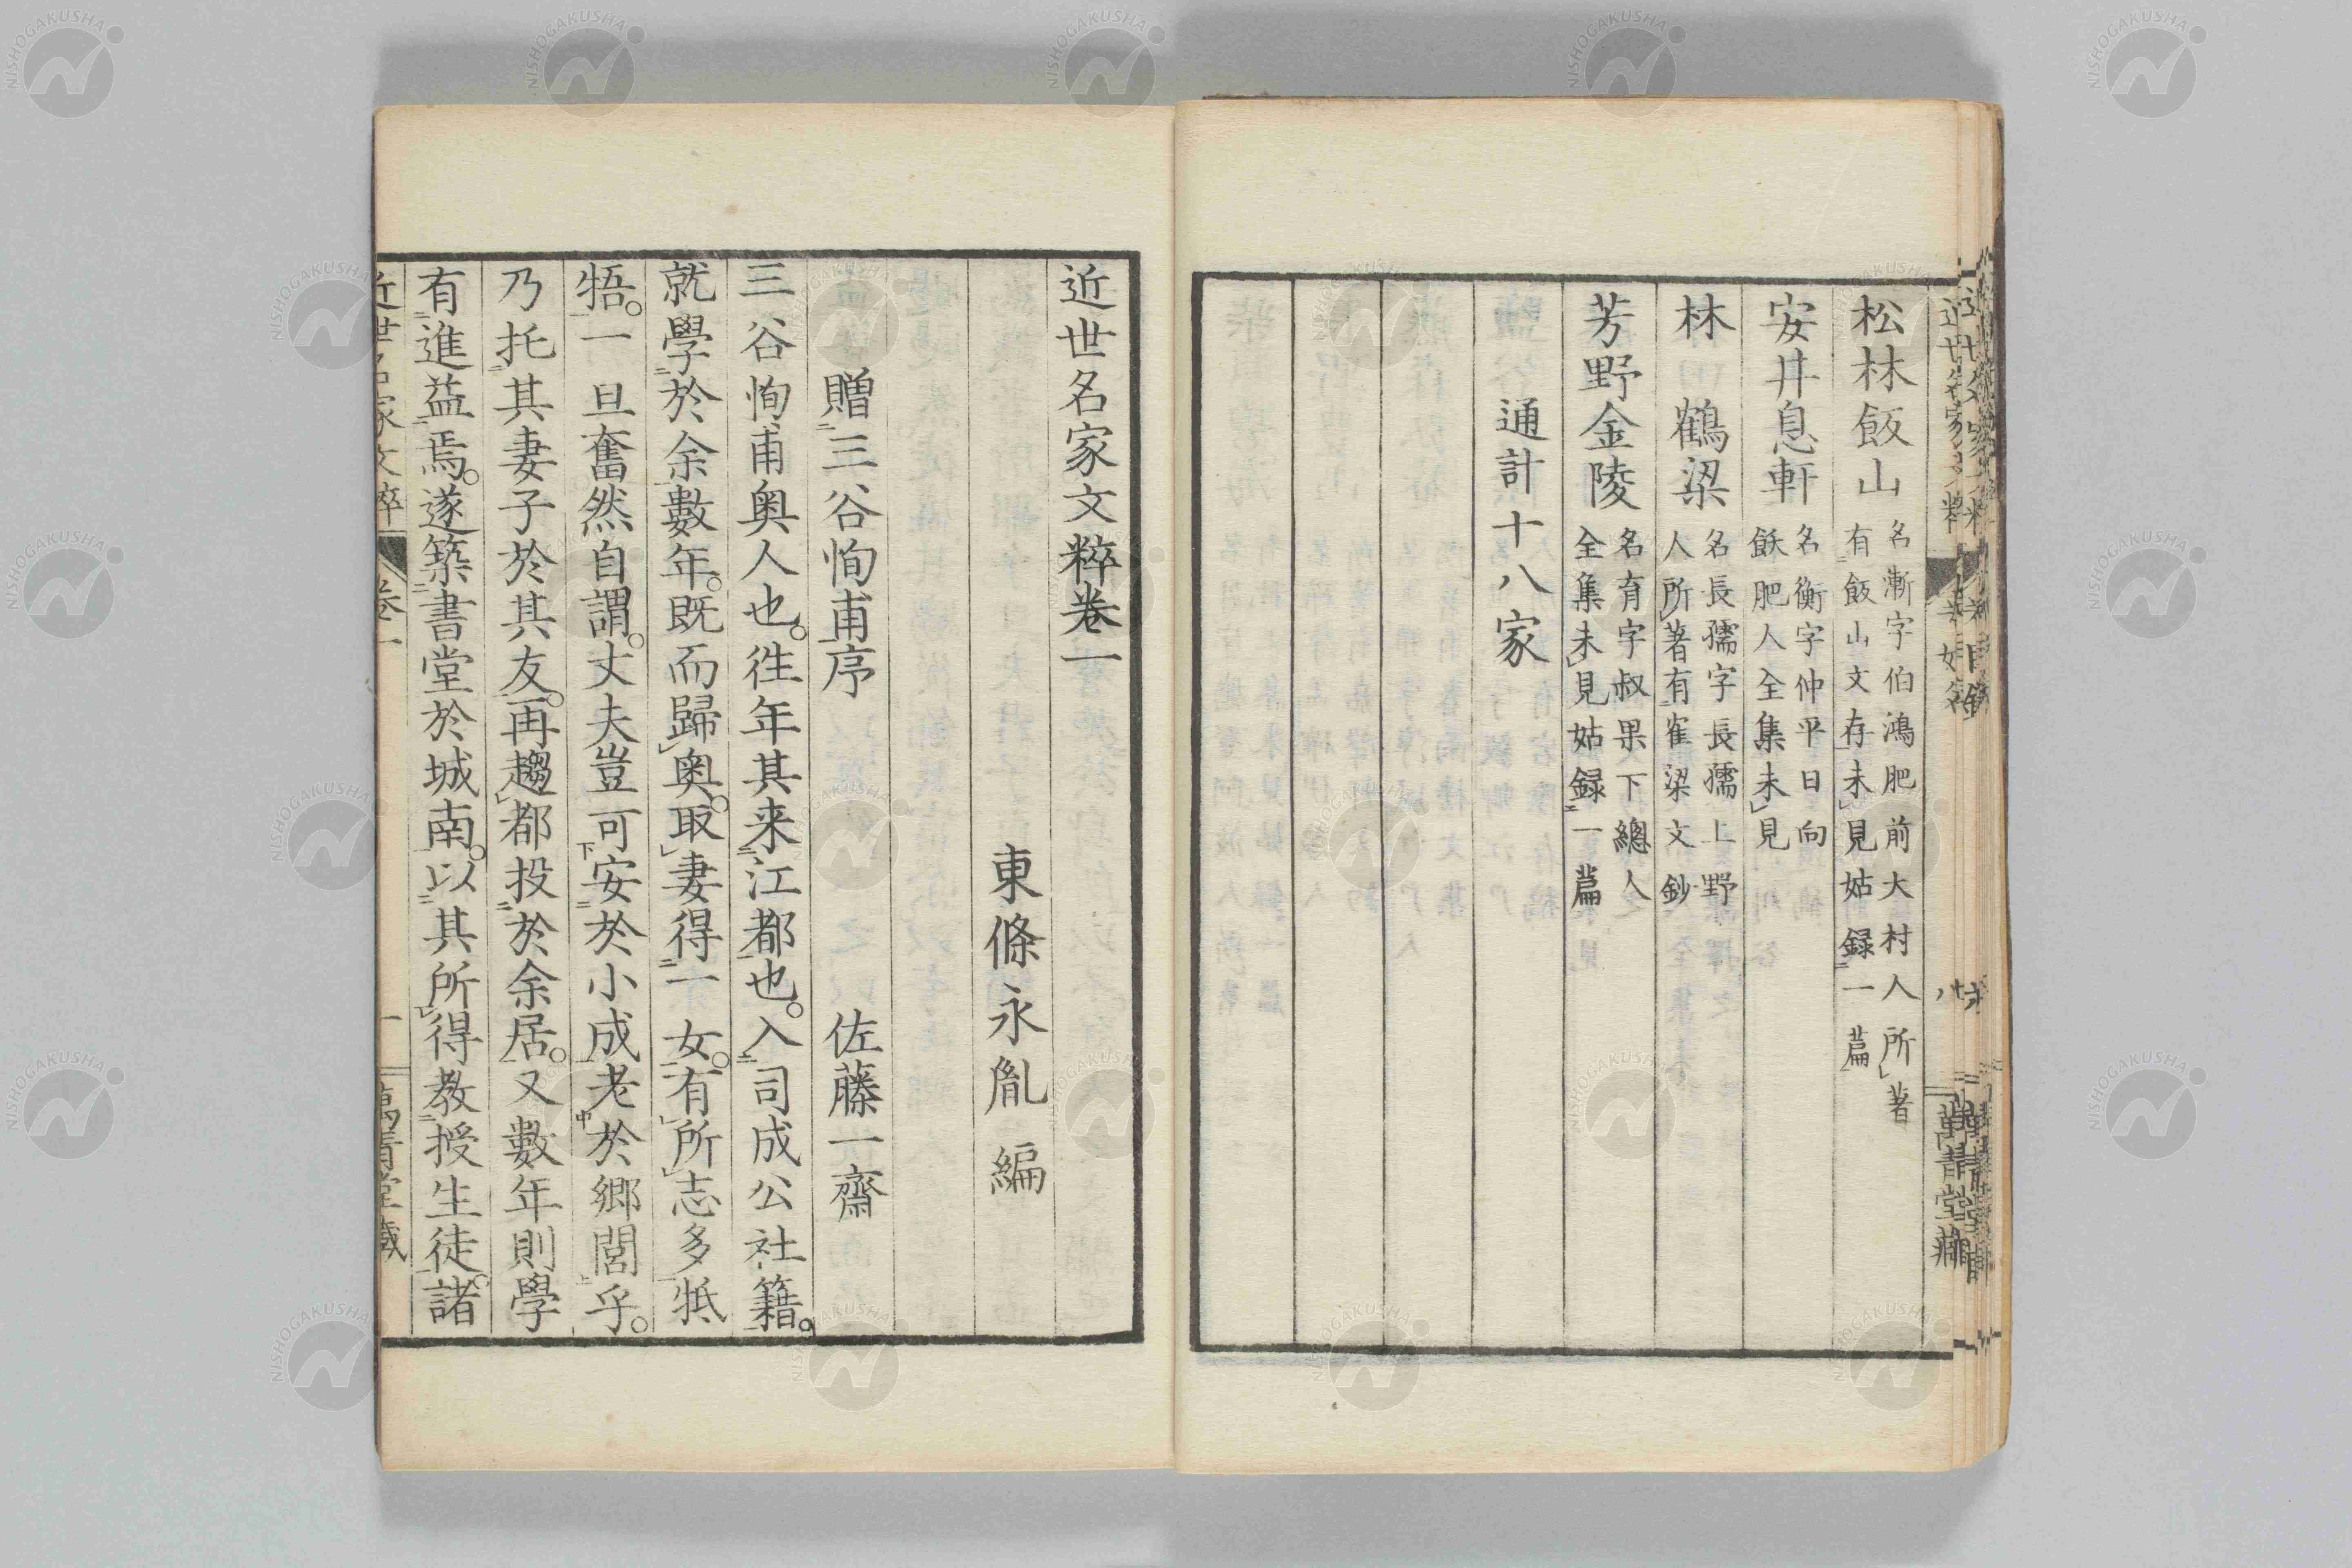 松林飯山 名漸字伯鴻肥前大村人所著
有飯山文存未見姑録一篇
安井息軒 名衡字仲平日向
飫肥人全集未見
林鶴梁 名長孺字長孺上野
人所著有崔梁文鈔
芳野金陵 名育字叔果下總人
全集未見姑録一篇
通計十八家
近世名家文粹卷一
東條永胤編
贈三谷恂甫序 佐藤一齋
三谷恂甫奥人也。徃年其来江都也。入司成公社籍。
就學於余數年。既而歸奥。取妻得一女。有所志多牴
牾。一旦奮然自謂。丈夫豈可安於小成老於郷閭乎。
乃托其妻子於其友。再趨都投於余居。又數年則學
有進益焉。遂築書堂於城南。以其所得教授生徒。諸
近世名家文粹 卷一 一 萬青堂藏
NISHOGAKUSHA